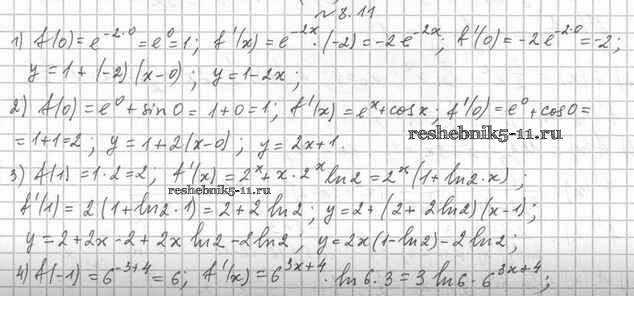 № 8.11
1) f(0)=e^{-2·0}=e^0=1; f'(x)=e^{-2x}·(-2)=-2e^{-2x}; f'(0)=-2e^{-2·0}=-2;
y=1+(-2)(x-0); y=1-2x;
2) f(0)=e^0+sin0=1+0=1; f'(x)=e^x+cosx; f'(0)=e^0+cos0=
=1+1=2; y=1+2(x-0); y=2x+1.
reshebnik5-11.ru
3) f(1)=1·2=2; f'(x)=2^x+x·2^x ln2=2^x(1+ln2·x);
reshebnik5-11.ru
f'(1)=2(1+ln2·1)=2+2ln2; y=2+(2+2ln2)(x-1);
y=2+2x-2+2x ln2-2ln2; y=2x(1-ln2)-2ln2;
4) f(-1)=6^{-3+4}=6; f'(x)=6^{3x+4}·ln6·3=3ln6·6^{3x+4};